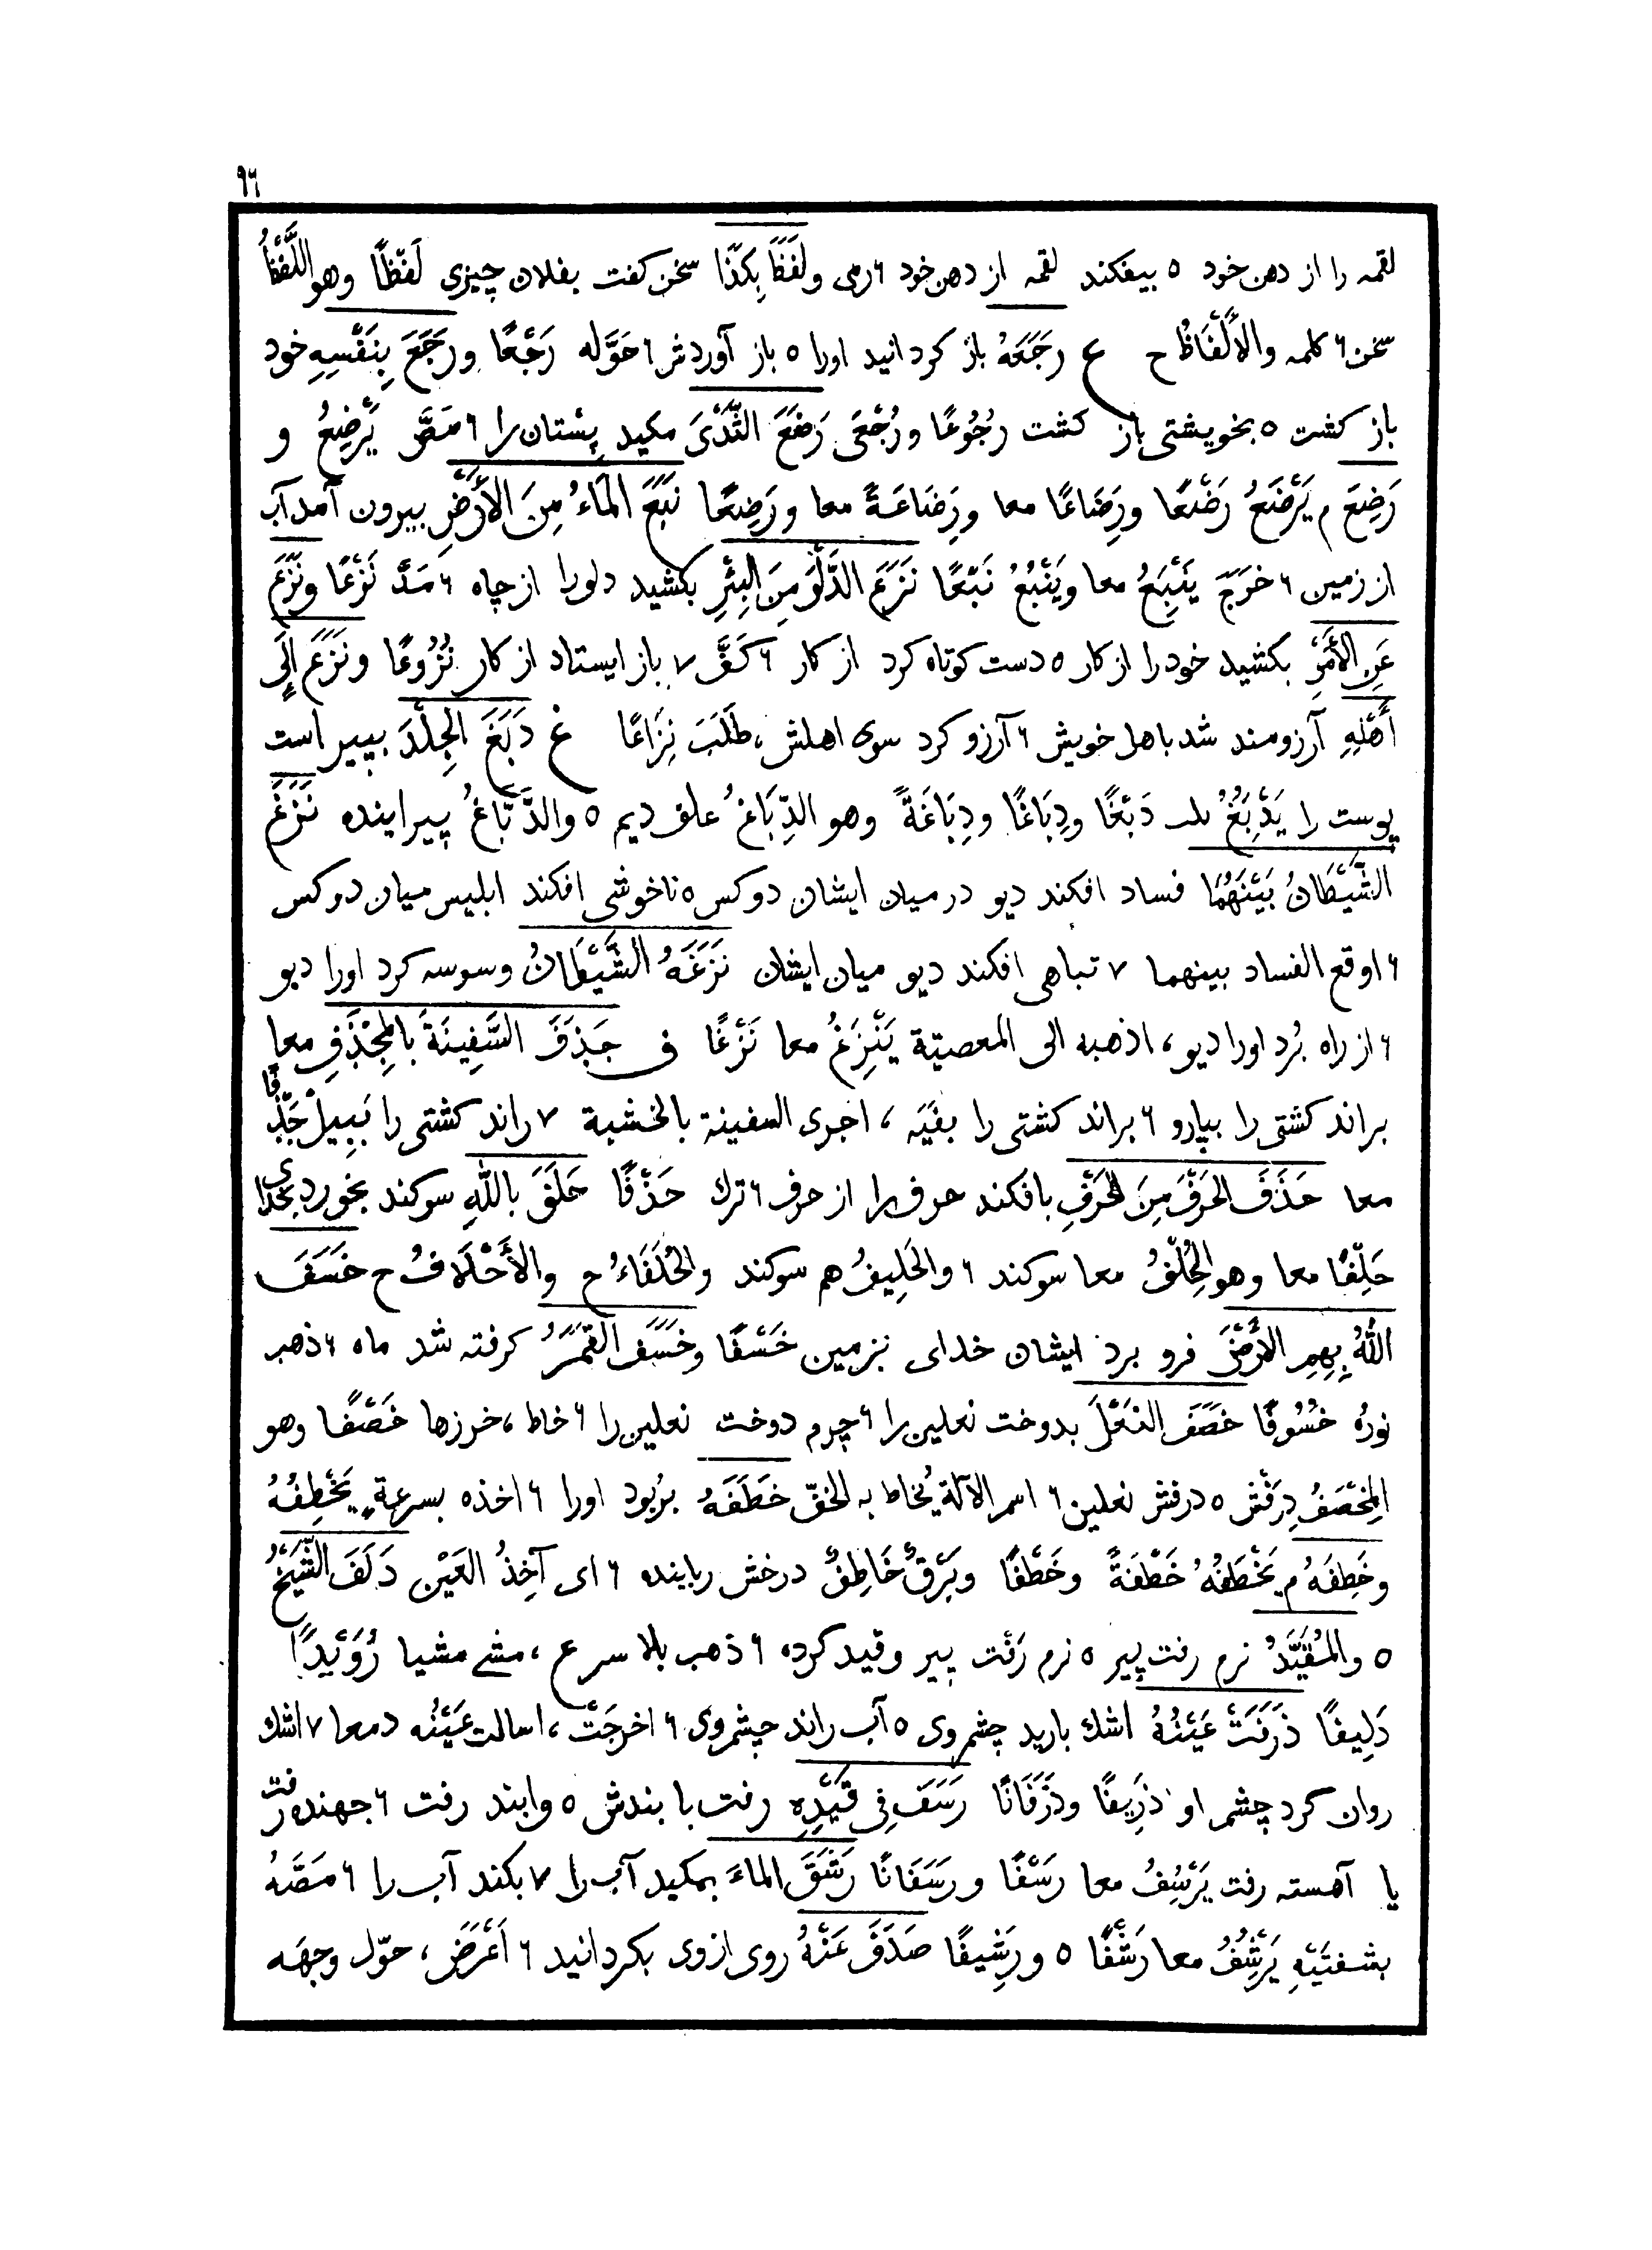 ٩٦
لقمه را از دهن خود ٥ بیفکند لقمه از دهن خود ٦ رمی ولَفَظَ بِکَذَا سخن کفت بفلان چیزی لَفْظًا وهو اللَّفْظُ
سخن ٦ کلمه والأَلْفَاظُ ح ع رَجَعَهُ باز کردانید اورا ٥ باز آوردش ٦ حَوَّله رَجْعًا ورَجَعَ بِنَفْسِهِ خود
باز کشت ٥ بخویشتی باز کشت رُجُوعًا ورُجْعَی رَضَعَ الثَّدْیَ مکید پستان را ٦ مَصَّ یَرْضِعُ و
رَضِعَ م یَرْضَعُ رَضْعًا ورِضَاعًا معا ورِضَاعَةً معا ورَضِعًا نَبَعَ المَاءُ مِنَ الأَرْضِ بیرون آمد آب
از زمین ٦ خَرَجَ یَنْبِعُ معا ویَنْبُعُ نَبْعًا نَزَعَ الدَّلْوَ مِنَ البِئْرِ بکشید دلورا از چاه ٦ مَدَّ نَزْعًا ونَزَعَ
عَنِ الأَمْرِ بکشید خودرا از کار ٥ دست کوتاه کرد از کار ٦ کَفَّ ٧ باز ایستاد از کار نُزُوعًا ونَزَعَ إِلَی
أَهْلِهِ آرزومند شد باهل خویش ٦ آرزو کرد سوی اهلش، طَلَبَ نِزَاعًا غ دَبَغَ الجِلْدَ بپیراست
پوست را یَدْبِغُ دَبْغًا ودِبَاغًا ودِبَاغَةً وهو الدِّبَاغُ علف دیم ٥ والدَّبَّاغُ پیراینده نَزَغَ
الشَّیْطَانُ بَیْنَهُمَا فساد افکند دیو در میان ایشان دو کس ٥ ناخوشی افکند ابلیس میان دو کس
٦ اوقع الفساد بینهما ٧ تباهی افکند دیو میان ایشان نَزَغَهُ الشَّیْطَانُ وسوسه کرد اورا دیو
٦ از راه بُرد اورا دیو، اذهبه الی المعصیّة یَنْزِغُ معا نَزْغًا ف جَذَفَ السَّفِینَةَ بالمِجْذَفِ معا
براند کشتی را بپارو ٦ براند کشتی را بفَیَه، اجری السفینة بالخشبة ٧ راند کشتی را بَبِیل جَذْفًا
معا حَذَفَ الحَرْفَ مِنَ الحَرْفِ بافکند حرف را از حرف ٦ ترك حَذْفًا حَلَفَ بالله سوکند بخورد بخدای
حَلِفًا معا وهو الحِلْفُ معا سوکند ٦ والحَلِیفُ هم سوکند والحُلَفَاءُ ح والأَحْلَافُ ح خَسَفَ
اللهُ بِهِمِ الأَرْضَ فرو برد ایشان خدای بزمین خَسْفًا وخَسَفَ القَمَرُ کرفته شد ماه ٦ ذهب
نورُه خُسُوفًا خَصَفَ النَعْلَ بدوخت نعلین را ٦ چرم دوخت نعلین را ٦ خاط، خرزها خَصْفًا وهو
المِخْصَفُ دِرَفْش ٥ درفش نعلین ٦ اسم الآلة یُخاط به الخفّ خَطَفَهُ بربُود اورا ٦ اخذه بسرعةٍ یَخْطِفُهُ
وخَطِفَهُ م یَخْطَفُهُ خَطْفَةً وخَطْفًا وبَرْقٌ خَاطِفٌ درخش رباینده ٦ ای آخِذُ العَیْنِ دَلَفَ الشَّیْخُ
٥ والمُقَیَّدُ نرم رفت پیر ٥ نرم رَفْت پیر وقید کرده ٦ ذهب بلا سرع، مشی مشیا رُوَیْدًا
دَلِیفًا ذَرَفَتْ عَیْنُهُ اشك بارید چشم وی ٥ آب راند چشم وی ٦ اخرجَتْ، اسالت عَیْنُه دمعا ٧ اشك
روان کرد چشم او ذَرِیفًا وذَرَفَانًا رَسَفَ فِی قَیْدِهِ رفت با بندش ٥ وابند رفت ٦ جهنده رفت
یا آهسته رفت یَرْسُِفُ معا رَسْفًا ورَسَفَانًا رَشَفَ الماءَ بمکید آب را ٧ بکند آب را ٦ مَصَّهُ
بشفتَیْهِ یَرْشُِفُ معا رَشْفًا ٥ ورَشِیفًا صَدَفَ عَنْهُ روی از وی بکردانید ٦ اَعْرَضَ، حوّل وجهَه